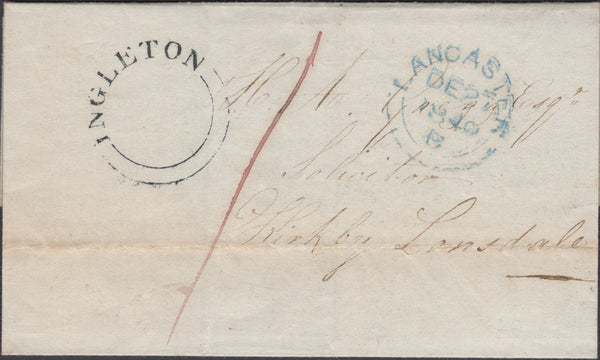 INGLETON
LANCASTER
DE 2
B
H. A. Esqr
Solicitor
Kirkby Lonsdale